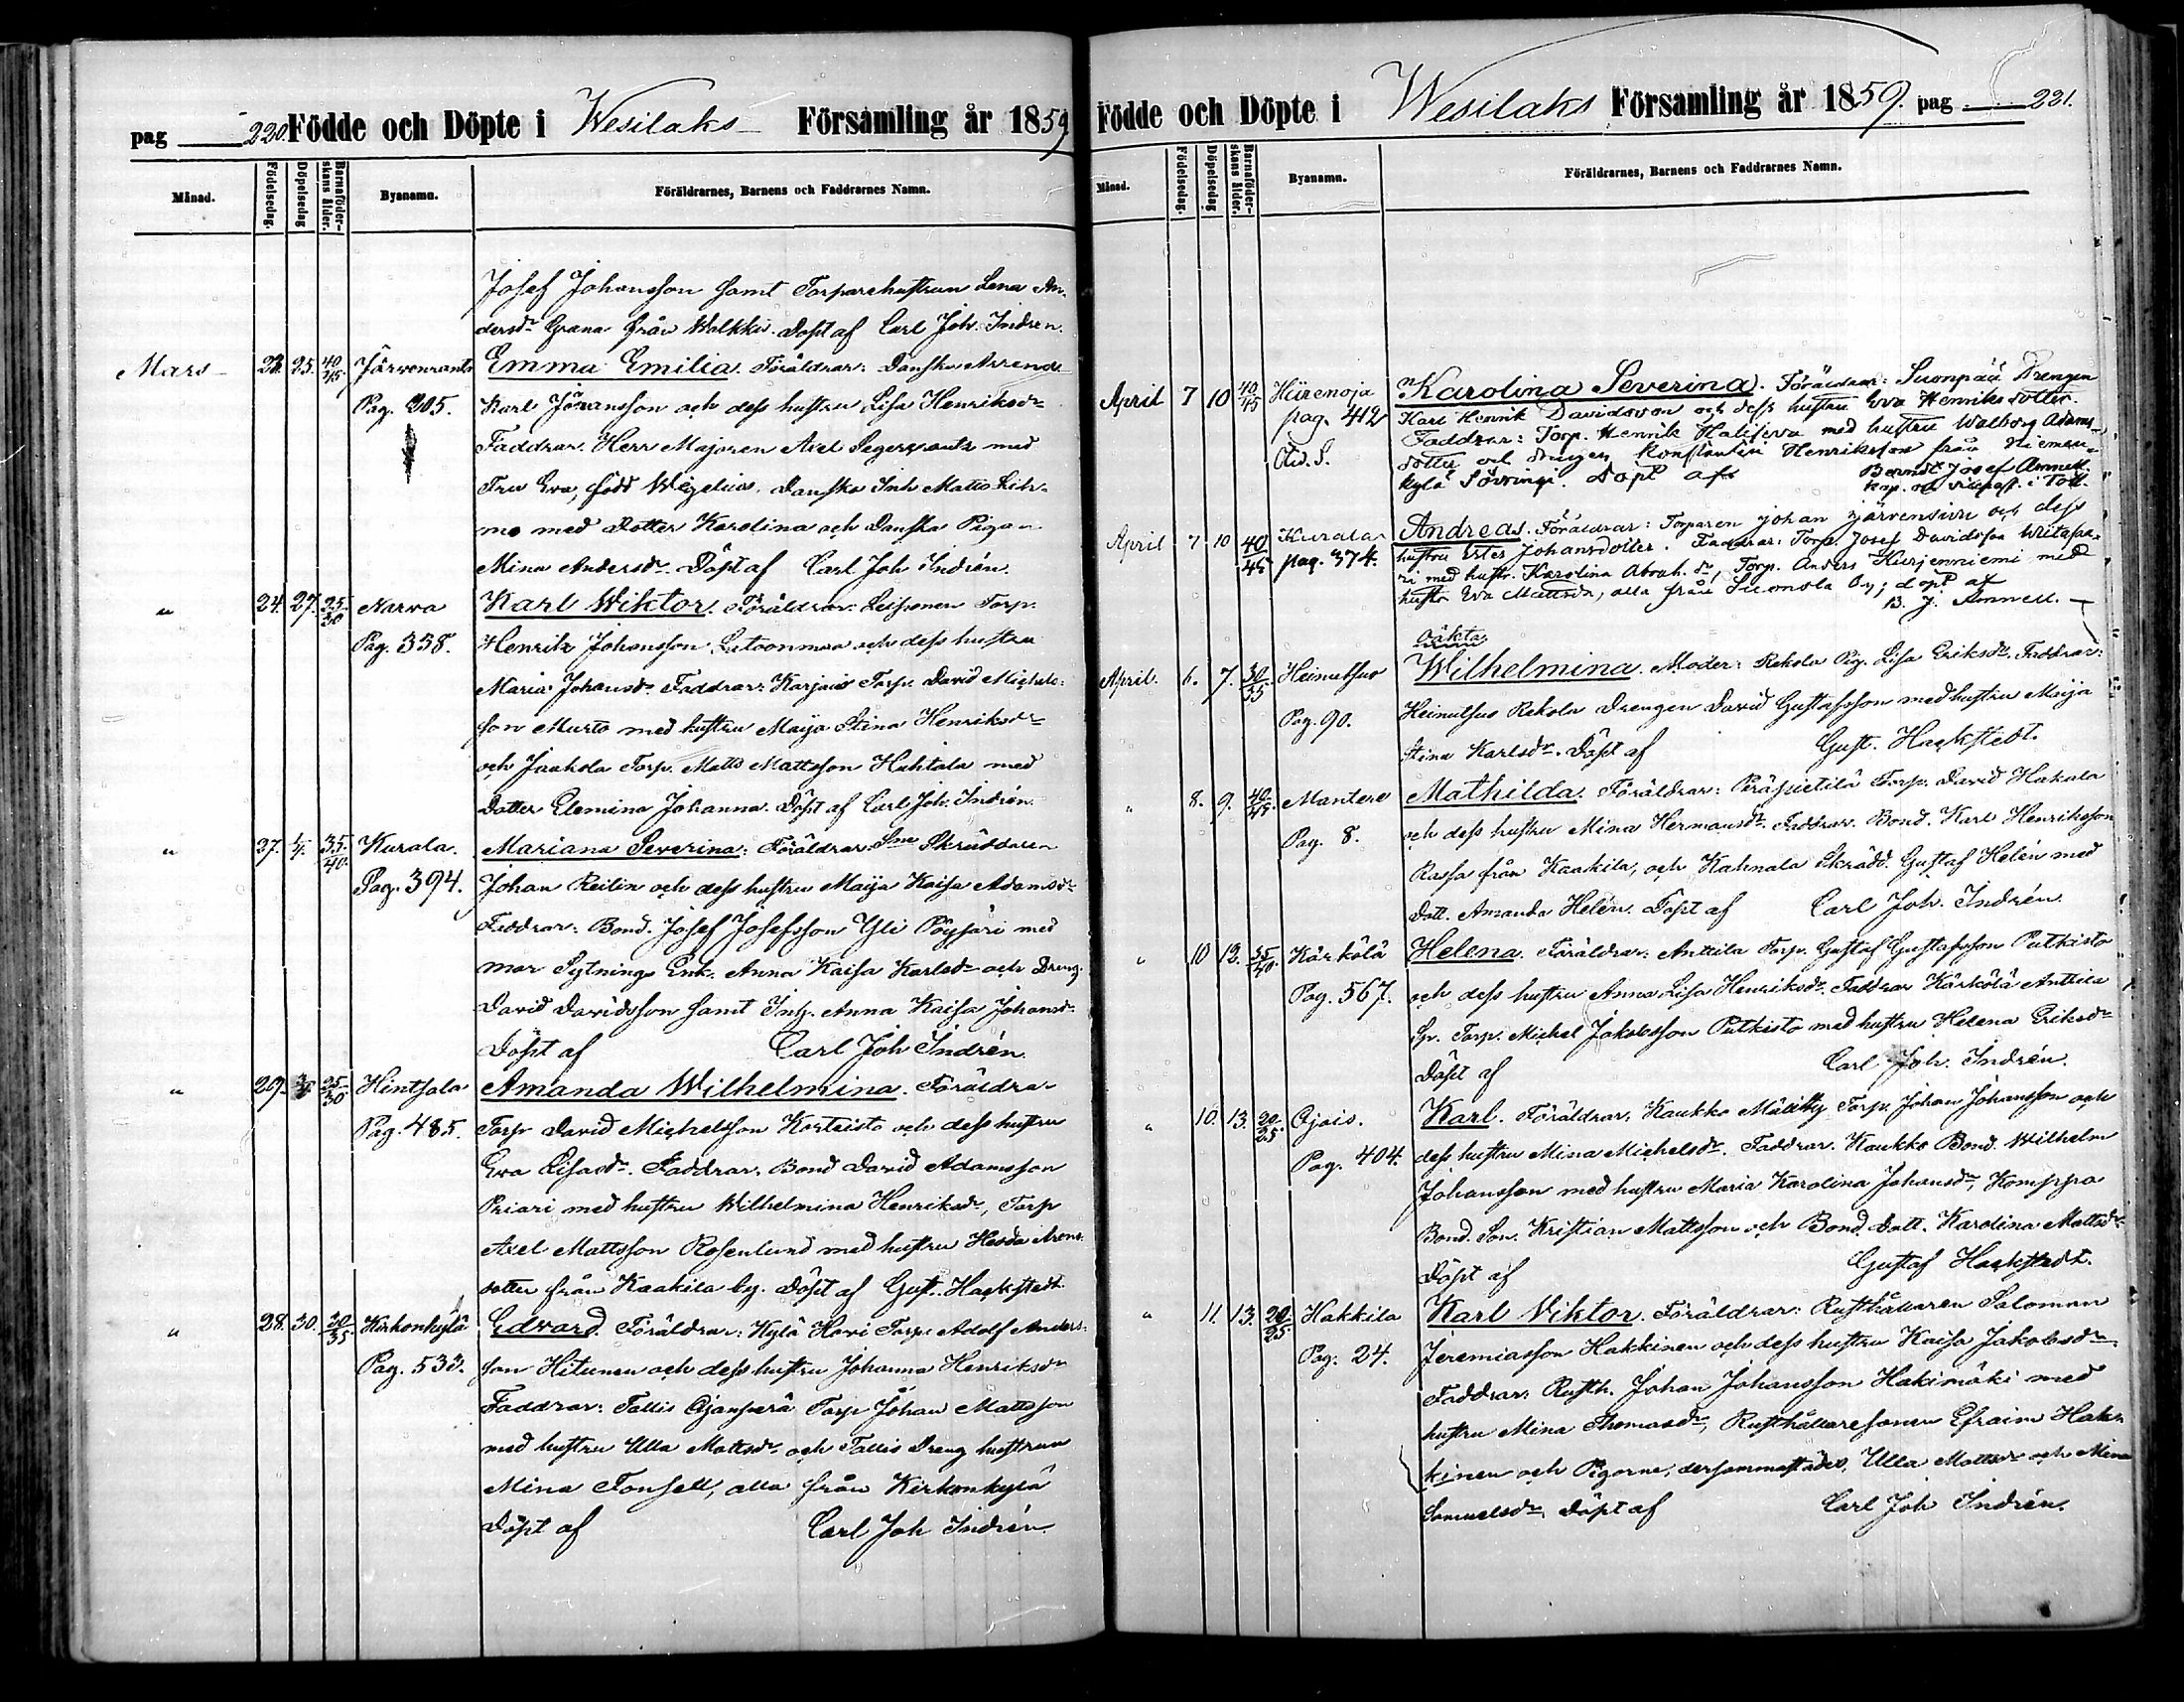 pag 220. Födde och Döpte i Wesilaks Församling år 1859
Månad. Födelsedag. Döpelsedag Barnaföderskans ålder. Byanamn. Föräldrarnes, Barnens och Faddrarnes Namn.
Josef Johansson samt Torparehustrun Lena An-
dersdr Grana från Walkki. Döpt af Carl Joh. Indrén.
Mars 23. 25. 40/45. Järvenranta Emma Emilia. Föräldrar: Danska Arrend.
Pag. 205. Karl Göransson och dess hustru Lisa Henriksdr
Faddrar. Herr Majoren Axel Segerstråle med
Fru Eva, född Wigelius, Danska Inh Matts Leh-
mo med Dotter Karolina och Danska Pigan
Mina Andersdr. Döpt af Carl Joh Indrén.
" 24. 27. 25/30 Narva Karl Wiktor. Föräldrar: Leiponen Torp.
Pag. 338. Henrik Johansson Lutoonmaa och dess hustru
Maria Johansdr. Faddrar: Karjais Torp. David Michels-
son Murto med hustru Maija Stina Henriksdr
och Jaakola Torp. Matts Mattsson Huhtala med
Dotter Elemina Johanna. Döpt af Carl Joh. Indrén.
" 27. 4. 35/40. Kurala. Mariana Severina. Föräldrar: Sne Skräddaren
Pag. 394. Johan Reilin och dess hustru Maija Kaisa Adamsdr
Faddrar: Bond. Josef Josefsson Yli Pöysäri med
mor Sytnings Enk. Anna Kaisa Karlsdr och Dreng.
David Davidsson samt Inh. Anna Kaisa Johansdr
Döpt af Carl Joh Indrén.
" 29. 25/30 Hintsala Amanda Wilhelmina. Föräldrar
Pag. 485. Torp David Michelsson Korteisto och dess hustru
Eva Elisasdr. Faddrar. Bond David Adamsson
Priari med hustru Wilhelmina Henriksdr, Torp
Axel Mattsson Rosenlund med hustru Hedda Arons-
dotter från Kaakila by. Döpt af Gust. Hackstedt
" 28. 30. 30/35 Kirkonkylä Edvard. Föräldrar: Kylä Hovi Torp. Adolf Anders-
Pag. 533. son Hitunen och dess hustru Johanna Henriksdr
Faddrar: Tallis Ojanperä Torp Johan Mattsson
med hustru Ulla Mattsdr och Tallis Dreng hustrun
Mina Tonsell, alla från Kirkonkylä
Döpt af Carl Joh Indrén.
Födde och Döpte i Wesilaks Församling år 1859. pag 221.
Månad. Födelsedag. Döpelsedag Barnaföderskans ålder. Byanamn. Föräldrarnes, Barnens och Faddrarnes Namn.
April 7 10 40/45 Hiirenoja Karolina Severina. Föräldrar: Suonpää Drengen
pag. 412 Karl Henrik Davidsson och dess hustru Eva Henriksdotter.
Faddrar: Torp. Henrik med hustru Walborg Adams-
dotter och drengen Konstantin Henriksson från Niemen-
kylä Döpt af Berndt Josef Amnell.
kap. i Tott.
April 7 10 40/45 Kurala Andreas. Föräldrar: Torparen Johan Järvensivu och dess
pag. 374. hustru Ester Johansdotter. Faddrar: Torp. Josef Davidsson
med hustr. Karolina Abrah. dr, Torp. Anders Kurjenniemi med
hustr Eva Mattsdr, alla från Suomela by; döpt af
B. J. Amnell.
oäkta
April. 6. 7. 30/35 Heinulhuo Wilhelmina. Moder: Rekola Pig. Lisa Eriksdr. Faddrar:
Pag. 90. Rekola Drengen David Gustafsson med hustru Maija
Stina Karlsdr. Döpt af Gust. Hackstedt.
" 8. 9. 40/45. Mantere Mathilda. Föräldrar: Peräpietilä Torp. David Hakala
Pag. 8. och dess hustru Mina Hermansdr. Faddrar. Bond. Karl Henriksson
Rassa från Kaakila, och Kahnala Skrädd. Gustaf Helén med
Dott. Amanda Helén. Döpt af Carl Joh. Indrén.
" 10 12. 35/40. Kärkölä Helena. Föräldrar: Anttila Torp. Gustaf Gustafsson Putkisto
Pag. 567. och dess hustru Anna Lisa Henriksdr. Faddrar Kärkölä Anttila
Torp. Michel Jakobsson Putkisto med hustru Helena Eriksdr
Döpt af Carl Joh. Indrén.
" 10. 13. 20/25 Ojois. Karl. Föräldrar: Kaukko Torp. Johan Johansson och
Pag. 404. dess hustru Mina Michelsdr. Faddrar. Kaukko Bond. Wilhelm
Johansson med hustru Maria Karolina Johansdr, Komppa
Bond. Son. Kristian Mattsson och Bond. Dott. Karolina Mattsdr.
Döpt af Gustaf Hackstedt.
" 11. 13. 20/25 Hakkila Karl Viktor. Föräldrar: Rusthållaren Saloman
Pag. 24. Jeremiasson Hakkinen och dess hustru Kaisa Jakobsdr
Faddrar: Rusth. Johan Johansson Hakimäki med
hustru Mina Thomasdr, Rusthållaresonen Efraim Hak-
kinen och Pigorna, dersammastädes, Ulla Mattsdr och Mina
Samuelsdr. Döpt af Carl Joh Indrén.